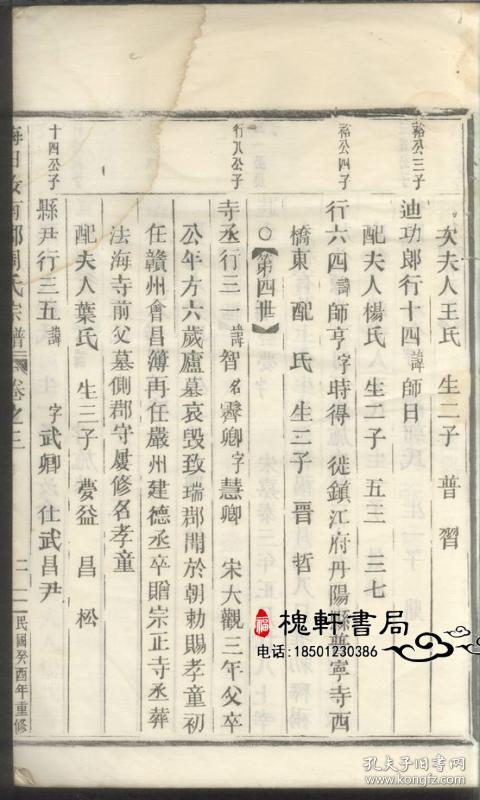 次夫人王氏 生二子 普 習
裕公三子
迪功郎行十四諱師日
配夫人楊氏 生二子 五三 三七
裕公四子
行六四諱師亨字時得 徙鎮江府丹陽縣普寧寺西
橋東 配 氏 生二子 晋 哲
○【第四世】
行八公子
寺丞行三一諱智名霽卿字慧卿 宋大觀三年父卒
公年方六歲廬墓哀毀致瑞郡聞於朝勅賜孝童初
任贛州會昌簿再任嚴州建德丞卒贈宗正寺丞葬
法海寺前父墓側郡守屢修名孝童
配夫人葉氏 生三子 夢益 昌 松
十四公子
縣尹行三五諱 字武卿 仕武昌尹
南 周氏宗譜 卷之三 二 民國癸酉年重修
福 槐軒書局
电话:18501230386
孔夫子旧书网